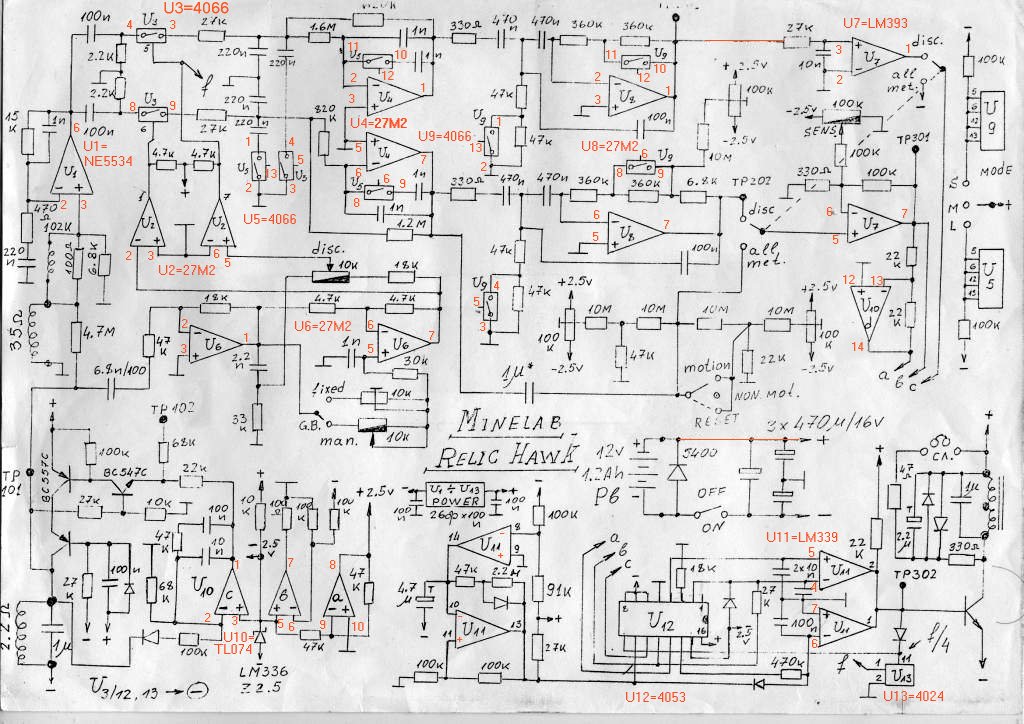 U3=4066
U7=LM393
100n
4
U3
3
27K
5
2.2K
2.2K
220n
220n
1.6M
11
U5
10
12
1n
1n
2
3
U4
1
U4=27M2
330Ω
470
n
470n
360K
360K
11
U9
10
12
2
3
U8
1
27K
10n
3
2
U7
1
disc.
all
met.
+2.5v
100K
-2.5v
10M
-2.5v
100K
SENS.
100K
TP301
100K
5
6
12
13
U
9
MODE
S
M
L
+
15
K
1n
6
100n
8
U3
9
6
27K
f
220
n
220n
820
K
5
6
U4
7
U1=
NE5534
U1
2
3
4.7K
4.7K
1
U2
2
3
7
U2
6
5
U2=27M2
1
U5
13
2
4
5
U5
3
U5=4066
6
U5
8
9
1n
1n
1.2M
47K
47K
U9=4066
U9
13
1
2
100n
U8=27M2
6
U9
8
9
330Ω
470n
470n
360K
360K
6.8K
TP202
disc
all
met.
6
5
U8
7
100n
47K
47K
U9
4
5
3
330Ω
100K
6
5
U7
7
22
K
22
K
12
13
U10
d
14
a
b
c
5
6
12
13
U
5
100K
470
Ω
220
n
102K
100Ω
6.8K
35Ω
4.7M
disc.
10K
18K
18K
4.7K
4.7K
U6=27M2
2
3
U6
1
6
5
U6
7
47
K
2.2
n
33
K
1n
30K
fixed
10K
G.B.
man.
10K
6.8n/100
+2.5v
100
K
-2.5v
10M
10M
10M
10M
47K
22K
+2.5v
100
K
-2.5v
1μ*
motion
NON MOT.
RESET
MINELAB
RELIC HAWK
3x470μ/16v
12v
1.2Ah
Pв
5400
OFF
ON
TP102
TP
101
BC557C
100K
BC547C
68K
22K
27K
10K
100
n
10n
47
K
68
K
27
K
100n
2.2Ω
1μ
100K
U10
c
2
3
U10=
TL074
-2.5
v
7
в
5
6
8
a
9
10
47K
47
K
+2.5v
LM336
Z2.5
U3/12,13 → ⊖
U1÷U13
POWER
100
n
100
n
14
U11
8
9
100K
91K
27K
47K
2.2M
4.7
μ
10
11
U11
13
100K
100K
a
b
c
U12
1
8
16
18K
27
K
2.5
v
U12=4053
U11=LM339
2x10n
5
4
U11
2
100
n
7
6
U11
1
470K
22
K
TP302
f/4
f
1
11
2
U13
U13=4024
сл.
47
2.2
μ
1μ
330Ω